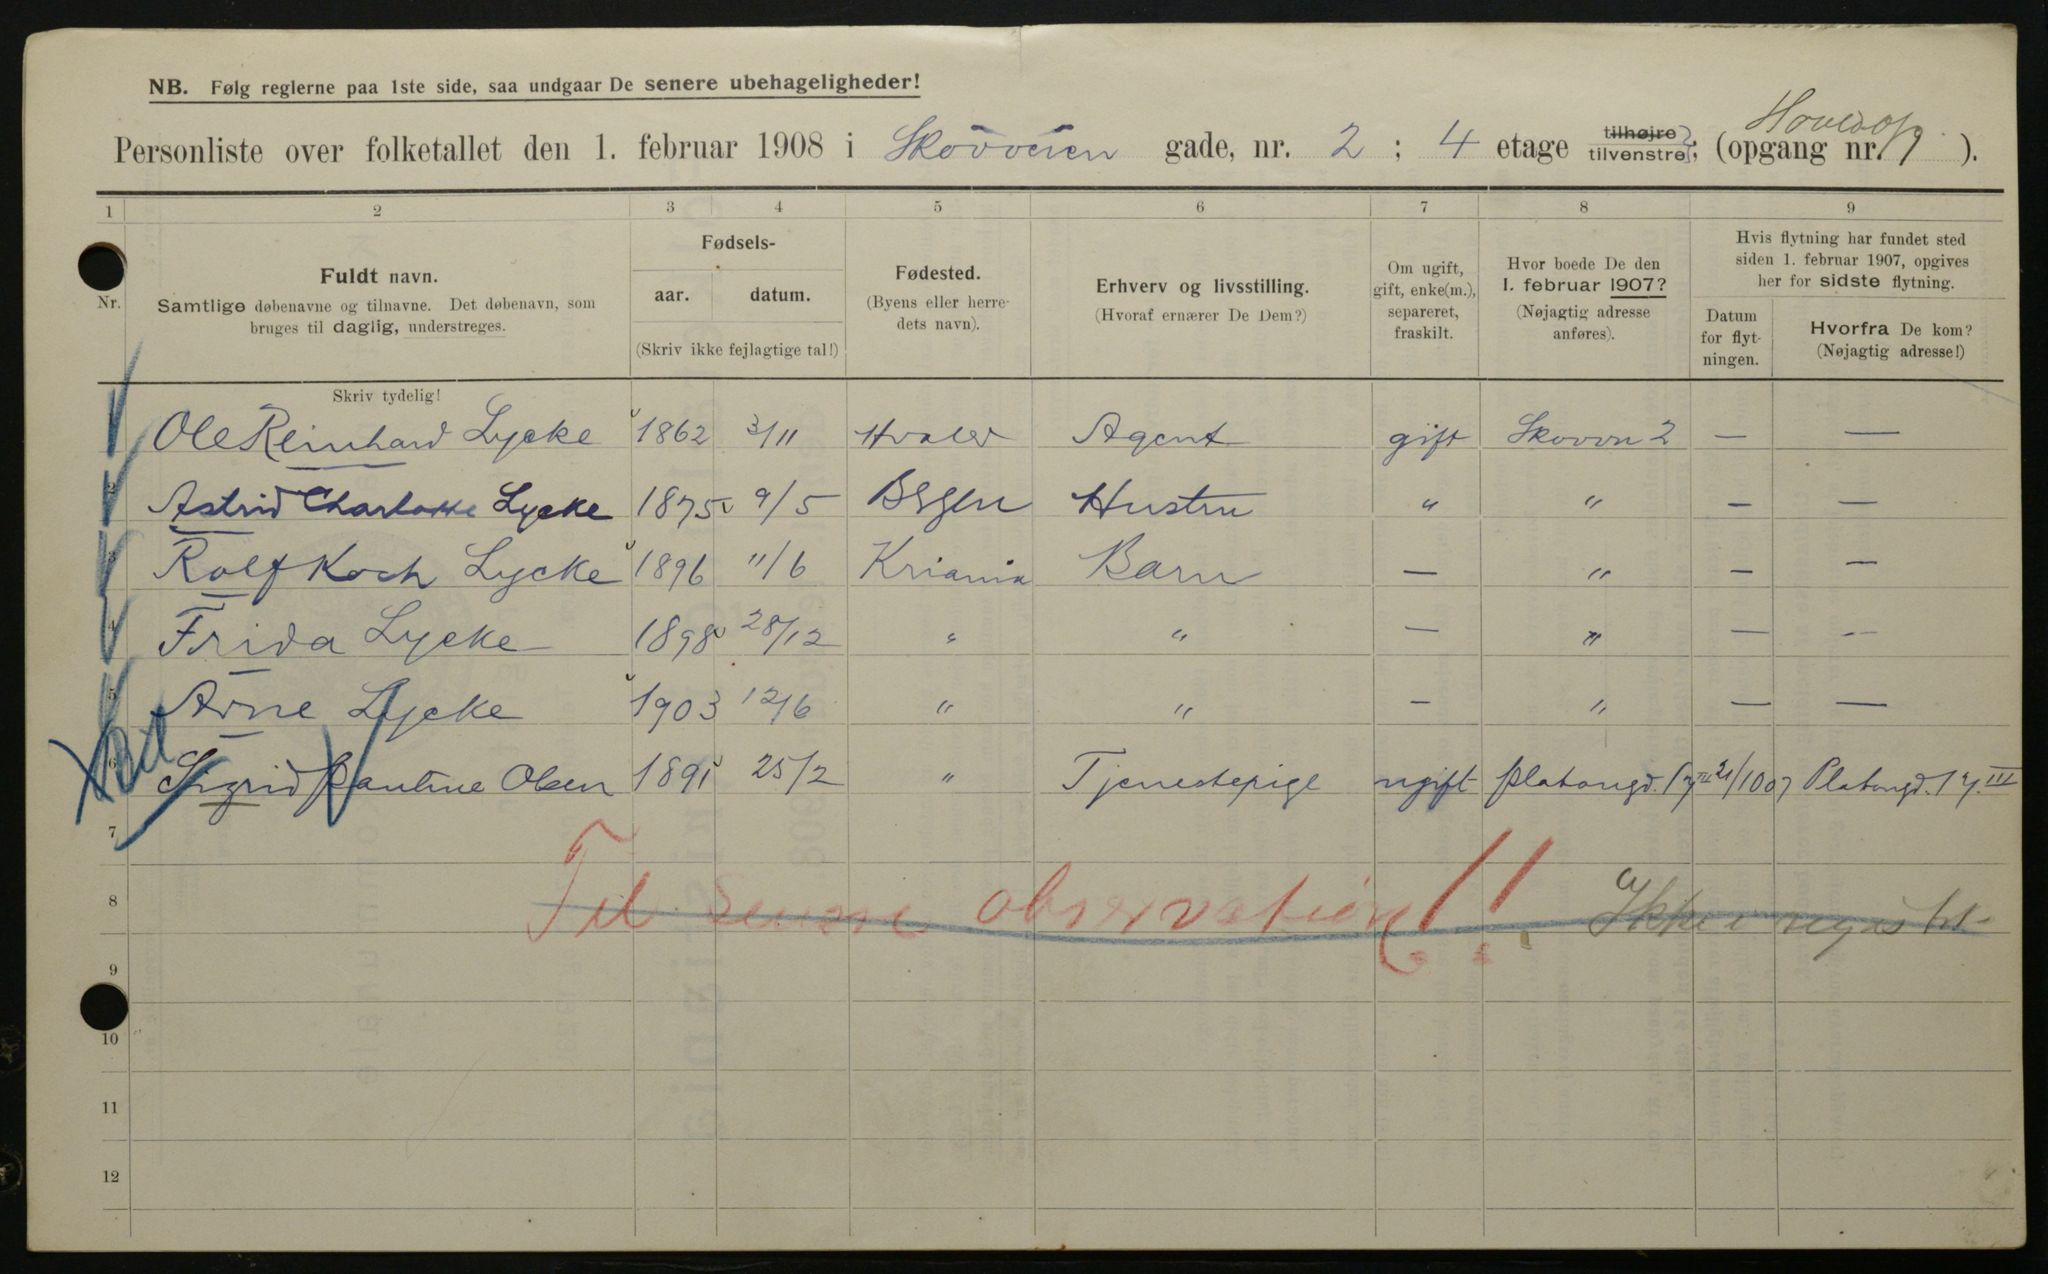 NB. Følg reglerne paa 1ste side, saa undgaar De senere ubehageligheder!
Personliste over folketallet den 1. februar 1908 i Skovveien gade, nr. 2 ; 4 etage tilhøjre tilvenstre ; (opgang nr. Hovedop ).
1 2 3 4 5 6 7 8 9
Nr.
Fuldt navn.
Samtlige døbenavne og tilnavne. Det døbenavn, som
bruges til daglig, understreges.
Skriv tydelig!
Fødsels-
aar. datum.
(Skriv ikke fejlagtige tal!)
Fødested.
(Byens eller herre-
dets navn).
Erhverv og livsstilling.
(Hvoraf ernærer De Dem?)
Om ugift,
gift, enke(m.),
separeret,
fraskilt.
Hvor boede De den
1. februar 1907?
(Nøjagtig adresse
anføres).
Hvis flytning har fundet sted
siden 1. februar 1907, opgives
her for sidste flytning.
Datum
for flyt-
ningen.
Hvorfra De kom?
(Nøjagtig adresse!)
1 Ole Reinhard Lycke 1862 3/11 Hvaler Agent gift Skovvn 2 — —
2 Astrid Charlotte Lycke 1875 9/5 Bergen Hustru " " — —
3 Rolf Koch Lycke 1896 11/6 Kriania Barn — " — —
4 Frida Lycke 1898 28/12 " " — " — —
5 Arne Lycke 1903 12/6 " " — " — —
6 Sigrid Pauline Olsen 1891 25/2 " Tjenestepige ugift Platougd. 17 III 21/10 07 Platougd. 17. III
7
8 Til senere observation!! Ikke i
9
10
11
12